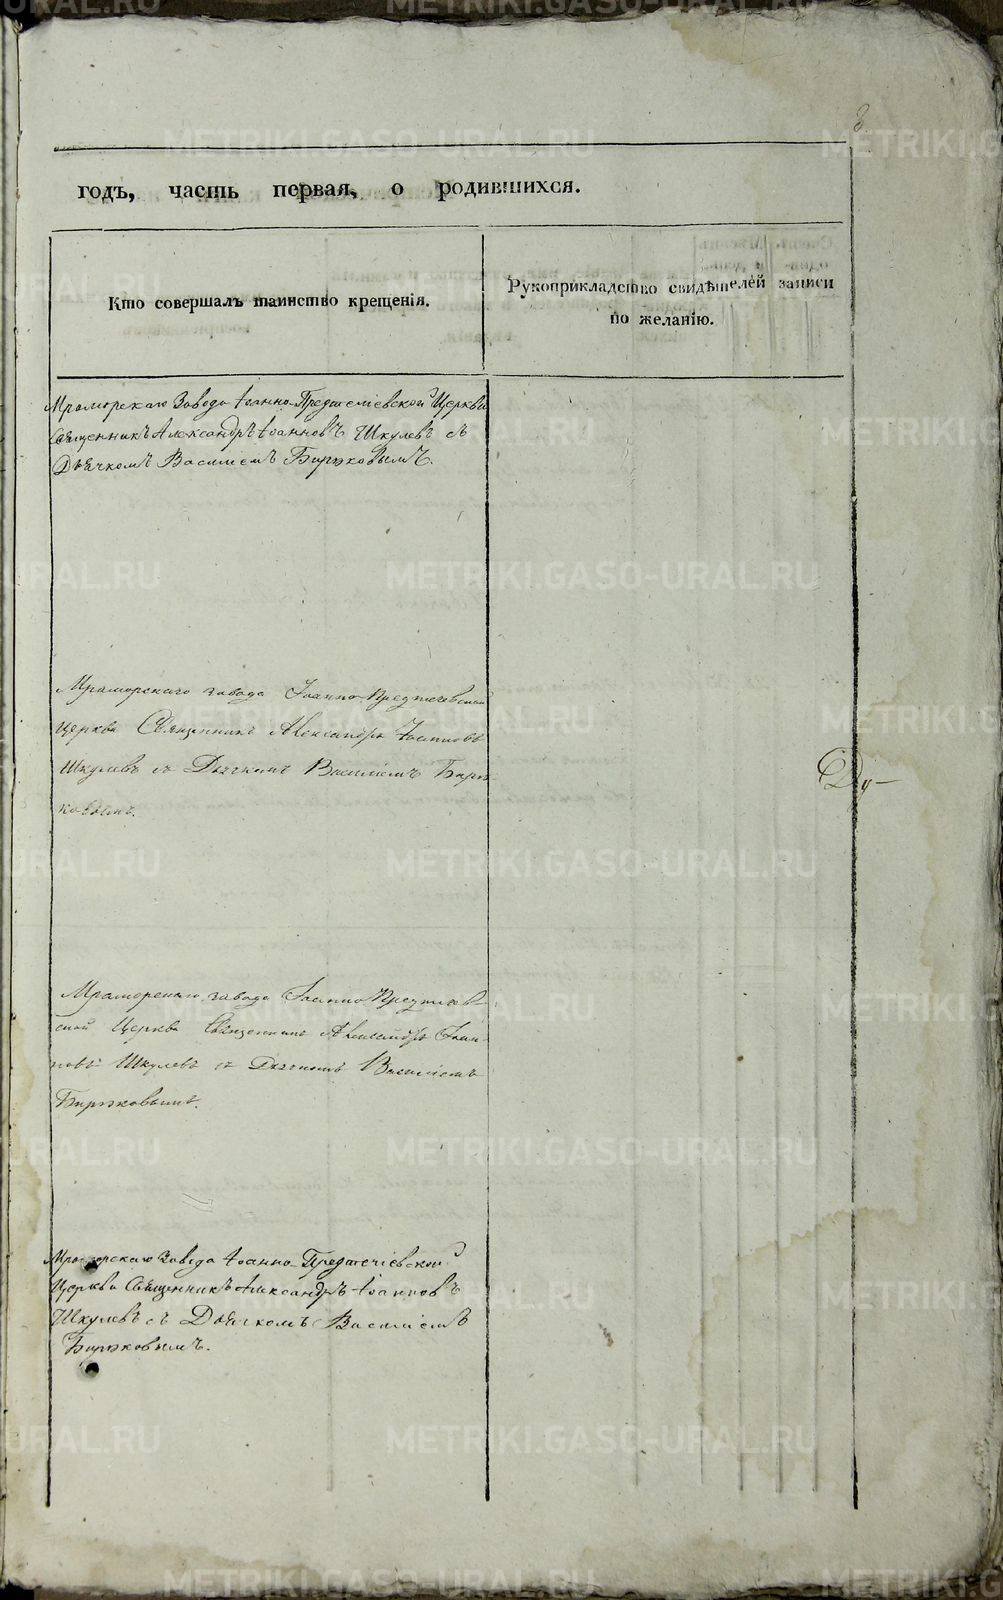 годъ, часть первая, о родившихся.
Кто совершалъ таинство крещенія.
Рукоприкладство свидѣтелей записи
по желанію.
Мраморскаго Завода Іоанно-Предтечіевской Церкви
Священникъ Александръ Іоанновъ Шкулевъ съ
Дьячкомъ Василіемъ Бирюковымъ.
Мраморскаго завода Іоанно-Предтечевской
Церкви Священникъ Александръ Іоанновъ
Шкулевъ съ Дьячкомъ Василіемъ Бирю-
ковымъ.
Мраморскаго завода Іоанно-Предтечев-
ской Церкви Священникъ Александръ Іоан-
новъ Шкулевъ съ Дьячкомъ Василіемъ
Бирюковымъ.
Мраморскаго Завода Іоанно-Предтечіевской
Церкви Священникъ Александръ Іоанновъ
Шкулевъ съ Дьячкомъ Василіемъ
Бирюковымъ.
METRIKI.GASO-URAL.RU